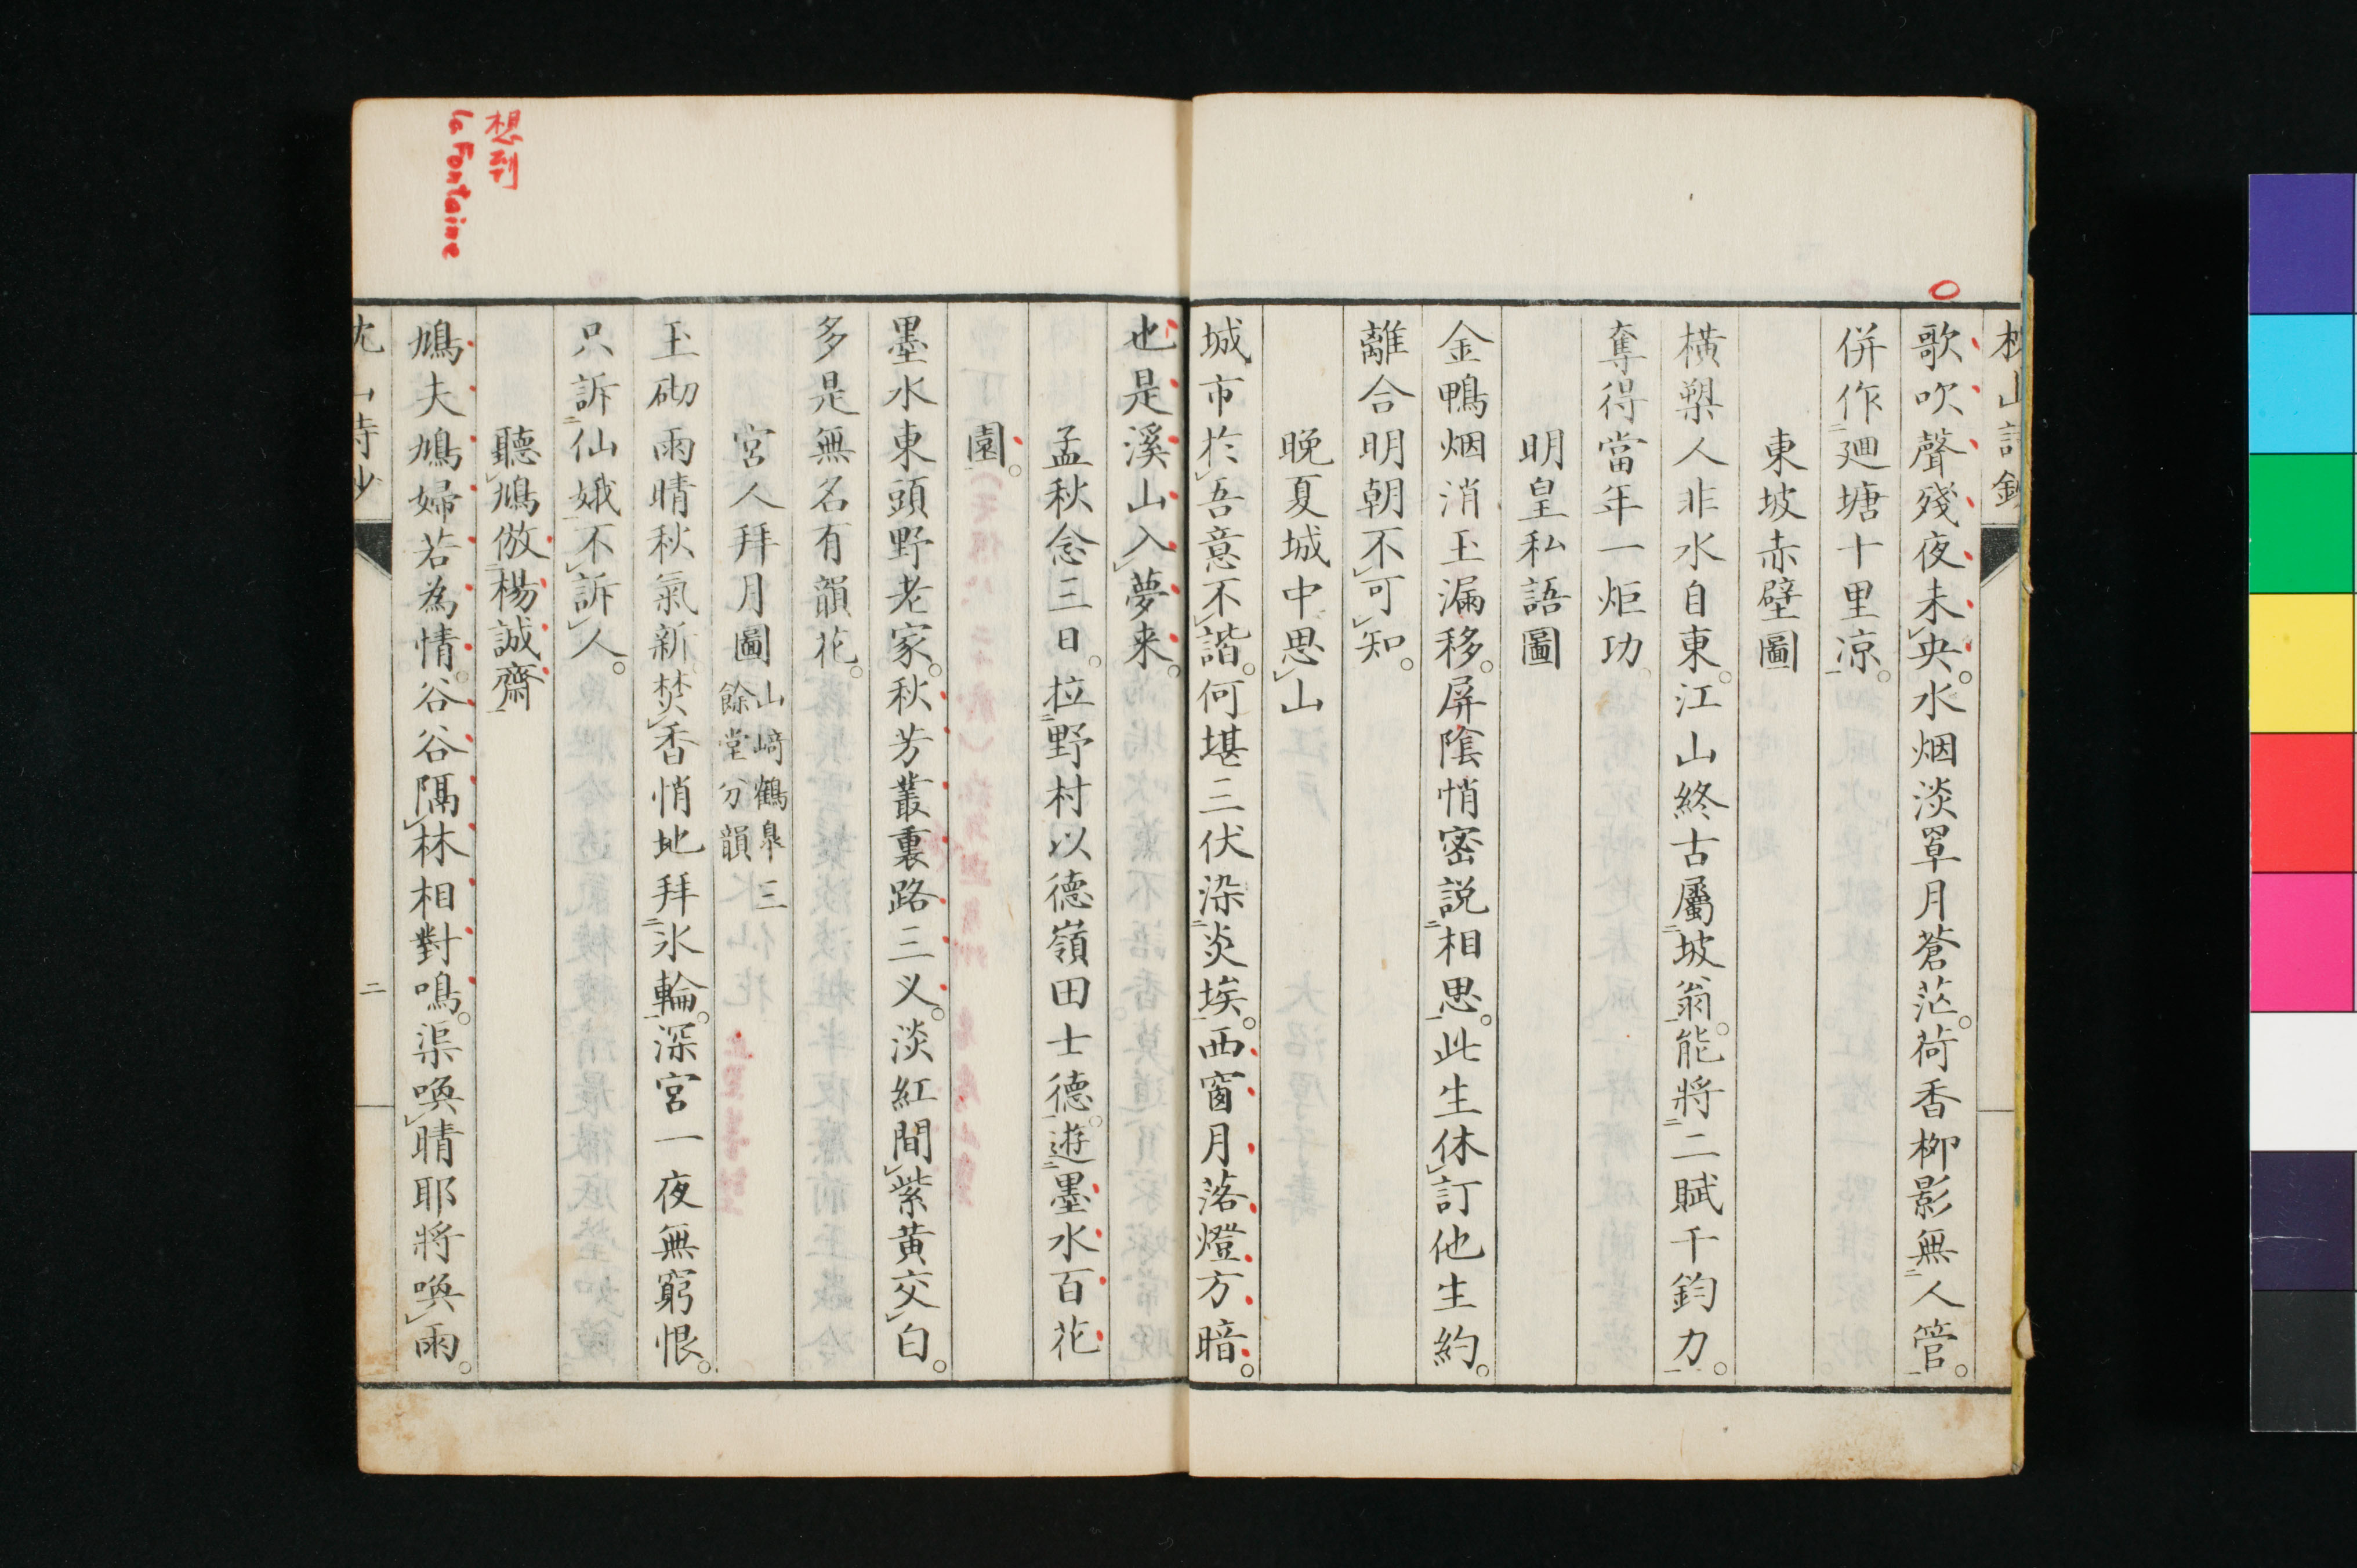 歌吹聲殘夜未央。水烟淡罩月蒼茫。荷香柳影無人管。
併作廻塘十里凉。
東坡赤壁圖
橫槊人非水自東。江山終古屬坡翁。能將二賦千鈞力。
奪得當年一炬功。
明皇私語圖
金鴨烟消玉漏移。屏陰悄密説相思。此生休訂他生約。
離合明朝不可知。
晩夏城中思山
城市於吾意不諧。何堪三伏染炎埃。西窗月落燈方暗。
也是溪山入夢来。
孟秋念三日。拉野村以德嶺田士德。遊墨水百花
園。
墨水東頭野老家。秋芳叢裏路三义。淡紅間紫黄交白。
多是無名有韻花。
宮人拜月圖 山﨑鶴皐三
餘堂分韻
玉砌雨晴秋氣新。焚香悄地拜氷輪。深宮一夜無窮恨。
只訴仙娥不訴人。
聽鳩倣楊誠齋
鳩夫鳩婦若為情。谷谷隔林相對鳴。渠喚晴耶將喚雨。
二
想到
la Fontaine